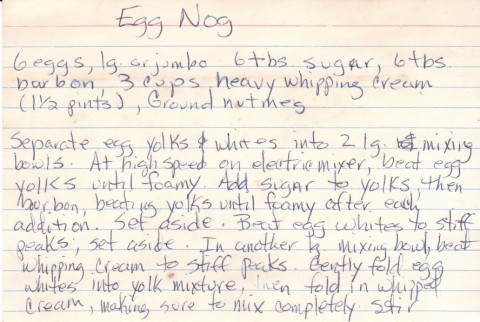 Egg Nog
6 eggs, lg. or jumbo 6 tbs. sugar, 6 tbs.
borbon, 3 cups heavy whipping cream
(1 1/2 pints), Ground nutmeg
Separate egg yolks & whites into 2 lg. mixing
bowls. At high speed on electric mixer, beat egg
yolks until foamy. Add sugar to yolks, then
bourbon, beating yolks until foamy after each
addition. Set aside. Beat egg whites to stiff
peaks, set aside. In another lg. mixing bowl, beat
whipping cream to stiff peaks. Gently fold egg
whites into yolk mixture, then fold in whipped
cream, making sure to mix completely. Stir